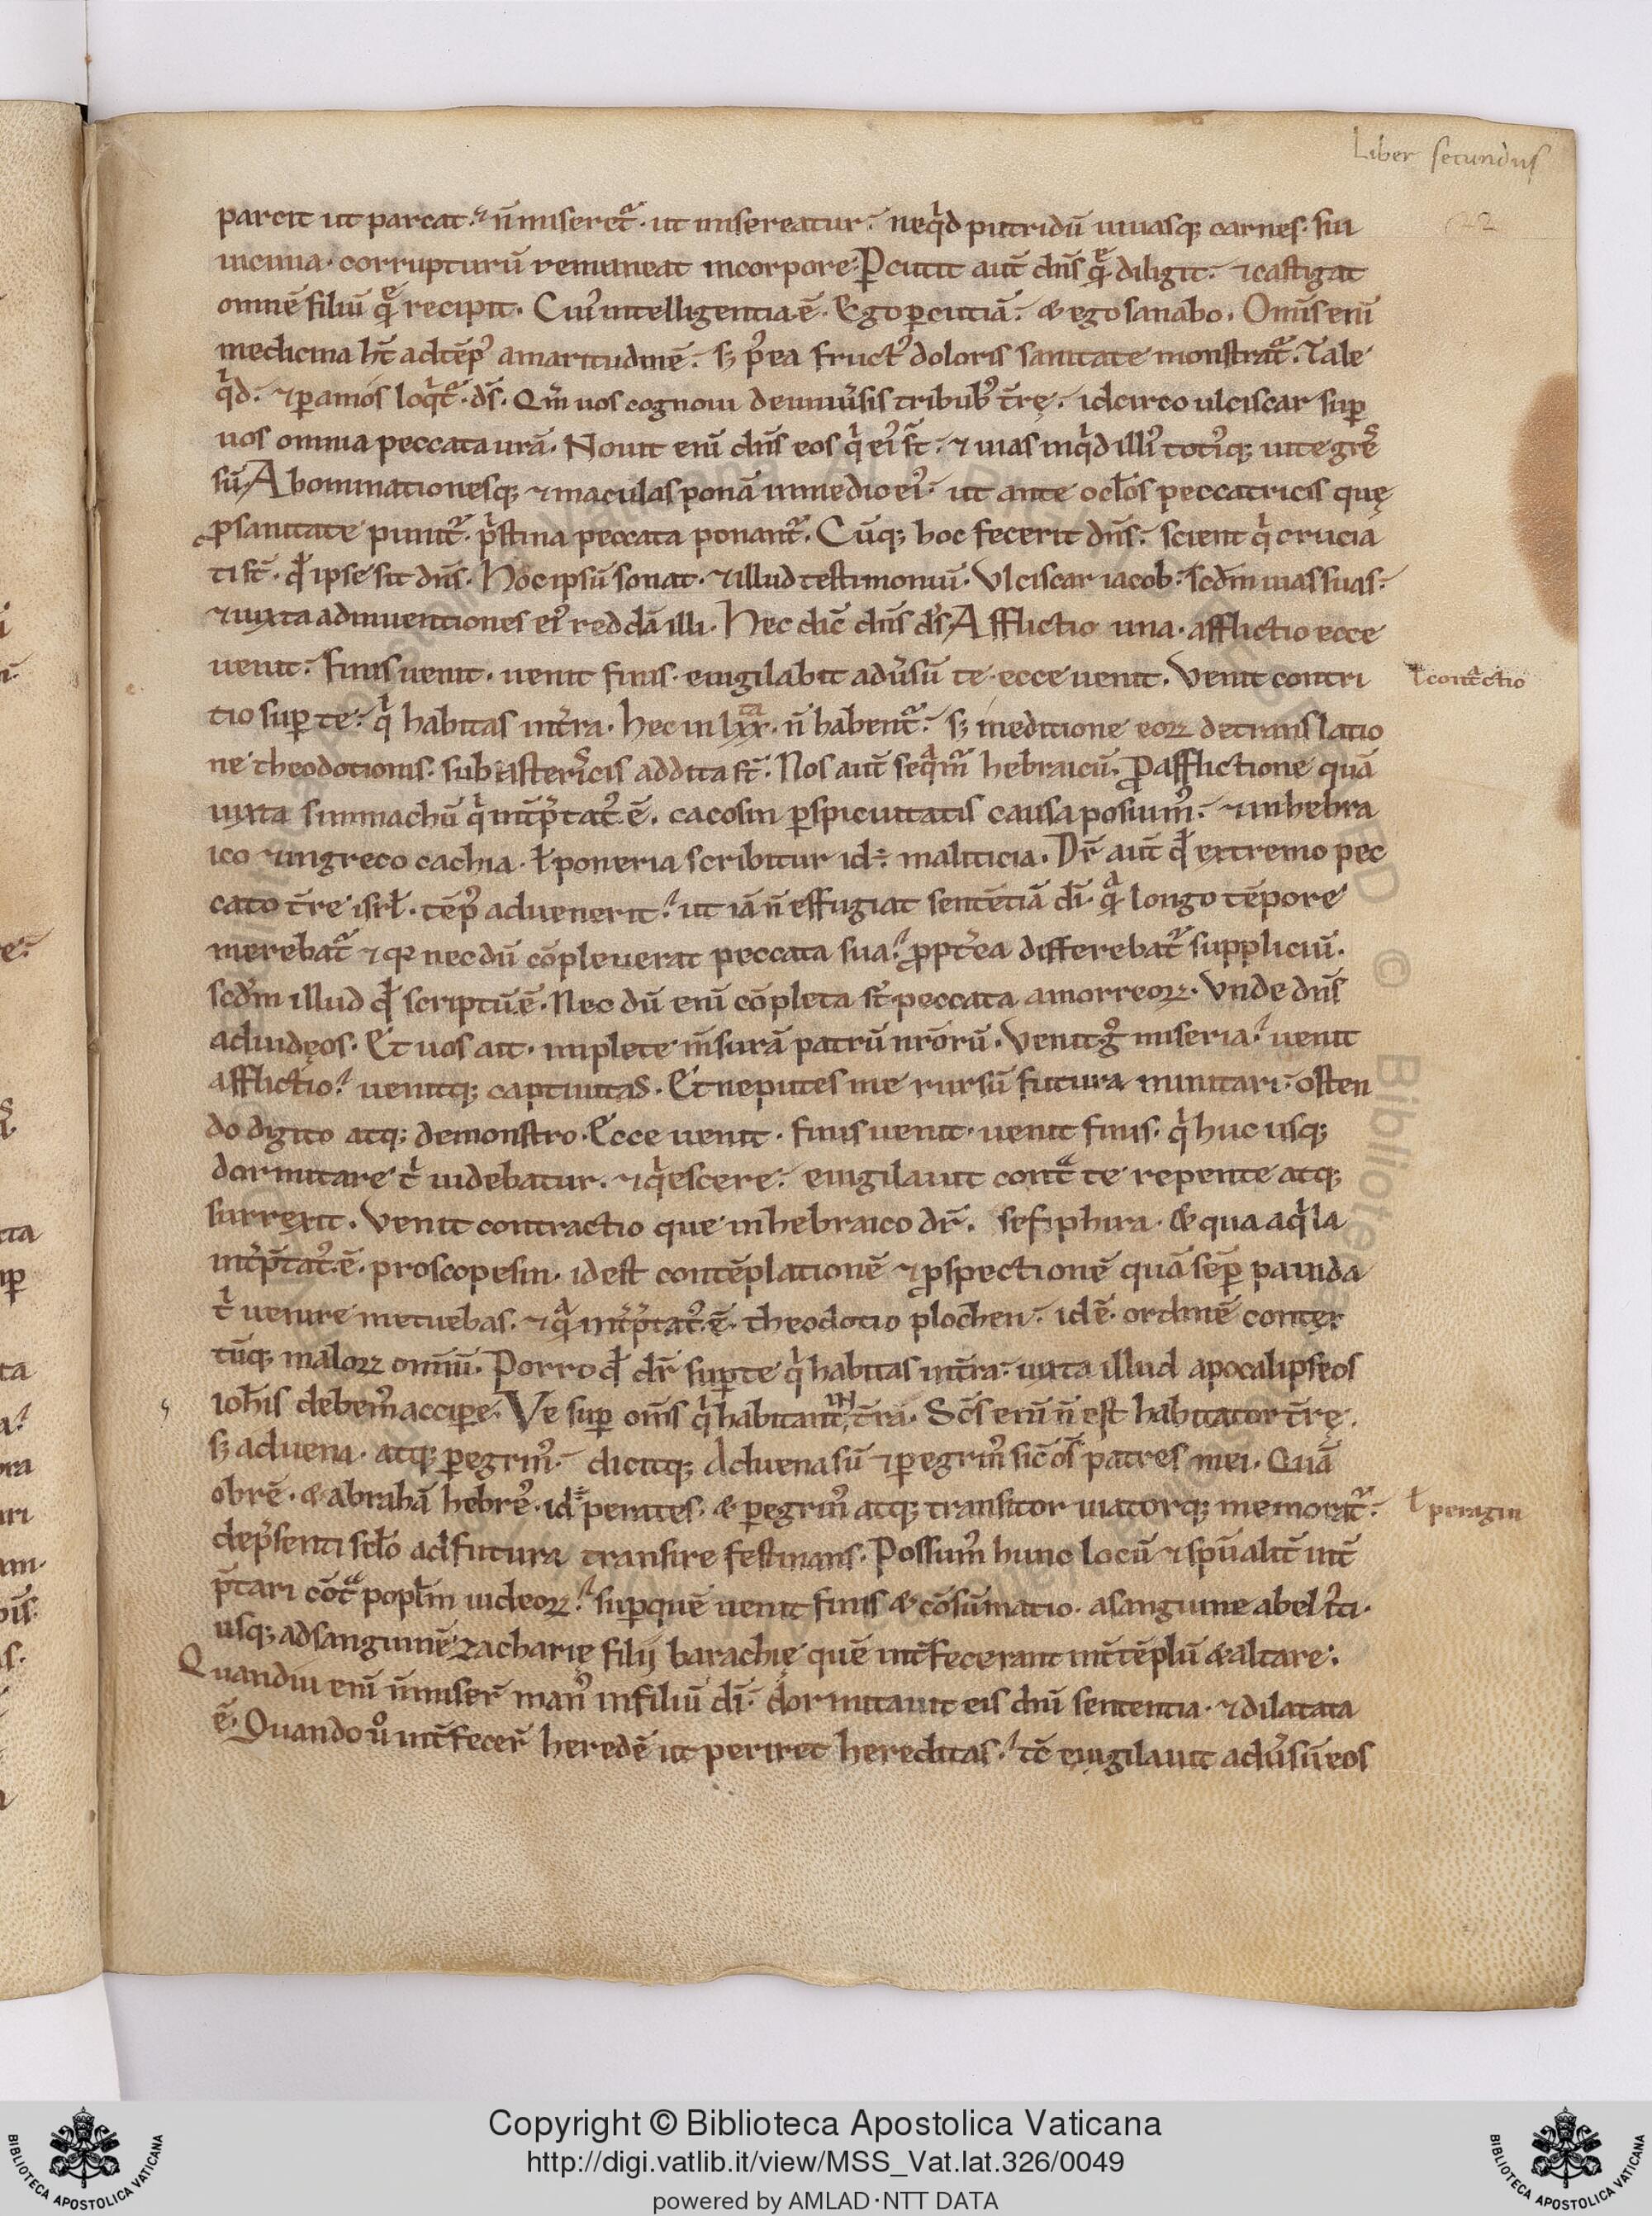 Liber secundus
22
parcit ut parcat. ⁊ n̄ miseret᷑. ut misereatur. neq̍d putridū uiuasq; carnes. sui
uicinia. corrupturū remaneat incorpore. Ꝑcutit aut̄ dn̄s q̄ͤ diligit. ⁊castigat
omnē filiū q̄ͤ recipit. Cui᷒ intelligentia ē. Ego ꝑcutiā. & ego sanabo. Om̄is eni᷒
medicina ht̄ adtēp᷒ amaritudinē. sꝫ p᷒ea fruct᷒ doloris sanitate monstrat᷑. Tale
q̍d. ⁊ ꝑ amós loq̍t᷑. ds̄. Qm̄ uos cognoui deuniu᷒sis tribub᷒ t̄rę. idcirco ulciscar suꝑ
uos omnia peccata ur̄a. Nouit eni᷒ dn̄s eos q̍ ei᷒ st̄. ⁊ uias inq̍d illi᷒ toti᷒q; uite gr̄es
sū. Abominationesq; ⁊ maculas ponā in medio ei᷒. ut ante ocl̄os peccatricis quę
ꝓ sanitate punit᷑. p̍stina peccata ponant᷑. Cūq; hoc fecerit dn̄s. scient q̍ crucia
ti st̄. qđ ipse sit dn̄s. Hoc ipsū sonat. ⁊ illud testimoniū. Vlciscar iacob. scđm uias suas.
⁊ iuxta adinuentiones ei᷒ reddā illi. Hec dic̄ dn̄s ds̄. Afflictio una. afflictio ecce
uenit. finis uenit. uenit finis. euigilabit adu᷒sū te. ecce uenit. Venit contri
ł cont̄ctio
tio suꝑ te. q̍ habitas int̄ra. hec in lxx ta. n̄ habent᷑. sꝫ ineditione eoꝝ detranslatio
ne theodotionis. sub asteriscis addita st̄. Nos aut̄ seq̍m̄ hebraicū. Pro afflictione quā
iuxta simmachū q̍ int̄p̄tat᷒ ē. cacosin ꝑspicuitatis causa posuim᷒. ⁊ inhebra
ico ⁊ ingreco cachia. ł poneria scribitur id ÷ maliticia. Dr̄ aut̄ qđ extremo pec
cato t̄re isrł. tēp᷒ aduenerit. ut iā n̄ effugiat sentētiā dī. q̍ longo tēpore
merebat᷑ ⁊ qꝛ necdū cōpleuerat peccata sua. ꝓpt̄ea differebat᷑ suppliciū.
scđm illud qđ scriptū ē. Nec dū eni᷒ cōpleta st̄ peccata amorreoꝝ. Vnde dn̄s
adiudęos. Et uos ait. implete m̄surā patrū nr̄orū. Venit g̊ miseria. uenit
afflictio. uenitq; captiuitas. Et ne putes me rursū futura minitari. osten
do digito atq; demonstro. Ecce uenit. finis uenit. uenit finis. q̍ huc usq;
dormitare t̍ uidebatur. ⁊ q̍escere. euigilauit cont̄ te repente atq;
surrexit. Venit contractio que inhebraico dr̄. sefiphira. & qua aq̍la
int̄p̄tat᷒ ē. proscopesin. id est contēplationē ⁊ ꝓspectionē quā sēꝑ pauida
t̍ uenire metuebas. ⁊ q̍ int̄p̄tat᷒ ē. theodotio plochen. id ē. ordinē conter
tūq; maloꝝ omiū. Porro qđ dr̄ suꝑ te q̍ habitas int̄ra. iuxta illud apocalipseos
ioh̄is debem᷒ accipe. Ve suꝑ om̄s q̍ habitant in t̄rā. Sc̄s eni᷒ n̄ est habitator t̄rę.
sꝫ aduena. atq; ꝑegrin᷒. dicitq; Aduena sū ⁊ ꝑegrin᷒ sic̄ ōs patres mei. Quā
obrē. & abrahā hebre᷒. id ÷ perates. & ꝑegrin᷒ atq; transitor uiatorq; memorat᷑.
ł peragin
dep̄senti scło ad futura transire festinans. Possum᷒ hunc locū ⁊ sp̄ualit̄ int̄
p̄tari cōt̄ popłm iudeoꝝ. suꝑ quē uenit finis & cōsūmatio. asanguine abel i᷒ti.
usq; adsanguinē zacharię filij barachię quē int̄fecerant int̄ tēplū & altare.
Quandiu eni᷒ n̄ miser̄ man᷒ infiliū dī. dormitauit eis dn̄i sententia. ⁊ dilatata
ē. Quando ů int̄fecer̄ heredē ut periret hereditas. tc̄ euigilauit adu᷒sū eos
Copyright © Biblioteca Apostolica Vaticana
http://digi.vatlib.it/view/MSS_Vat.lat.326/0049
powered by AMLAD·NTT DATA
BIBLIOTECA APOSTOLICA VATICANA
BIBLIOTECA APOSTOLICA VATICANA